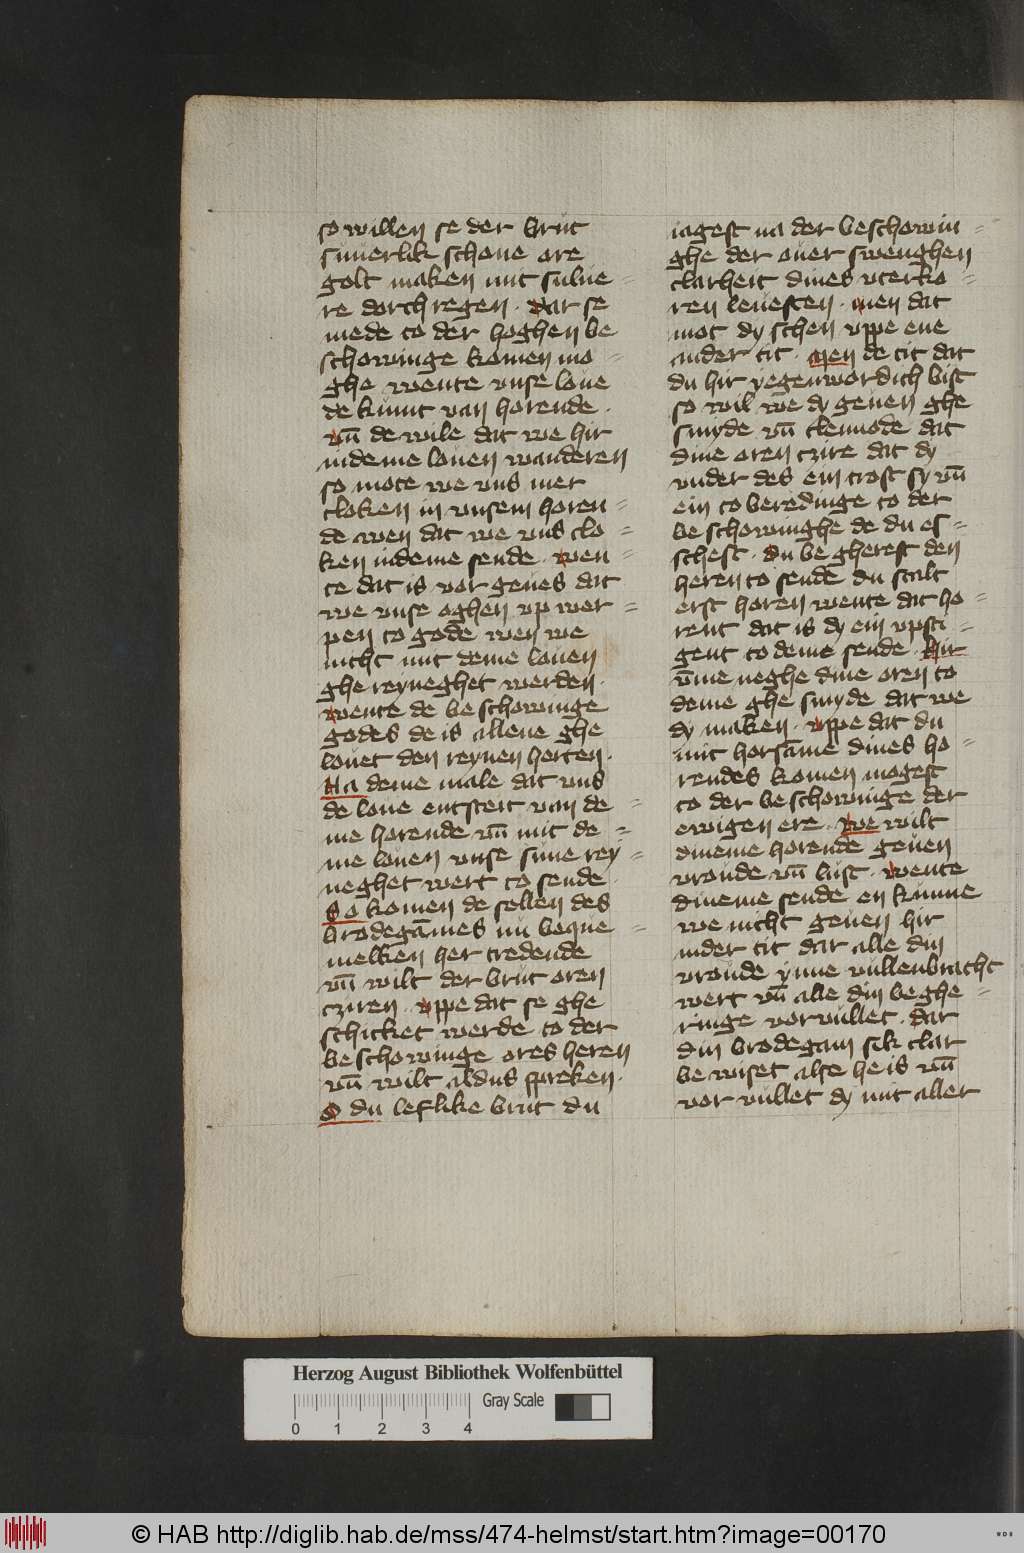 so willen se der brut
suuerlik schone ore
golt maken mit sulue=
re dorch regen. Dar se
mede to der hoghen be
schowinge komen mo=
ghe wente vnse loue
de kumt van horende.
vn̄ de wile dat we hir
in deme louen wanderen
so mote we vns mer
cloken in vnsem horen=
de wen dat we vns clo=
ken in deme sende. wen=
te dat is vor geues dat
we vnse oghen vp wer=
pen to gode wen we
nicht mit deme louen
ghe reyneghet werden.
wente de be schowinge
godes de is allene ghe
louet den reynen herten.
Na deme male dat vns
de loue entsteit van de=
me horende vn̄ mit de=
me louen vnse sinne rey=
neghet wert to sende
So komen de sellen des
brodegāmes nu beque=
melken her tredende
vn̄ wilt der brut oren
cziren. vppe dat se ghe
schicket werde to der
be schowinge ores heren
vn̄ wilt aldus spreken.
O du leflike brut du
iagest na der beschowin=
ghe der ouer swenghen
clarheit dines vterko=
ren leuesten. men dat
mot dy schen vppe ene
ander tit. Men de tit dat
du hir yegenwordich bist
so wil we dy geuen ghe
smyde vn̄ clennode dat
dine oren czire dat dy
vnder des ein trost sy vn̄
ein to beredinge to der
be schowinghe de du es=
schest. Du be gherest den
heren to sende du scalt
erst horen wente dat ho=
rent dat is dy ein vpsti=
gent to deme sende. Hir
vm̄e neghe dine oren to
deme ghe smyde dat we
dy maken. vppe dat du
mit horsāme dines ho=
rendes komen mogest
to der be schowinge der
ewigen ere. We wilt
dineme horende geuen
vroude vn̄ lust. wente
dineme sende en kunne
we nicht geuen hir
in der tit dar alle din
vroude ynne vullenbracht
wert vn̄ alle din be ghe=
ringe vorvullet. dar
din brodegam sik clar
be wiset alse he is vn̄
vor vullet dy mit aller
Herzog August Bibliothek Wolfenbüttel
Gray Scale
0 1 2 3 4
© HAB http://diglib.hab.de/mss/474-helmst/start.htm?image=00170